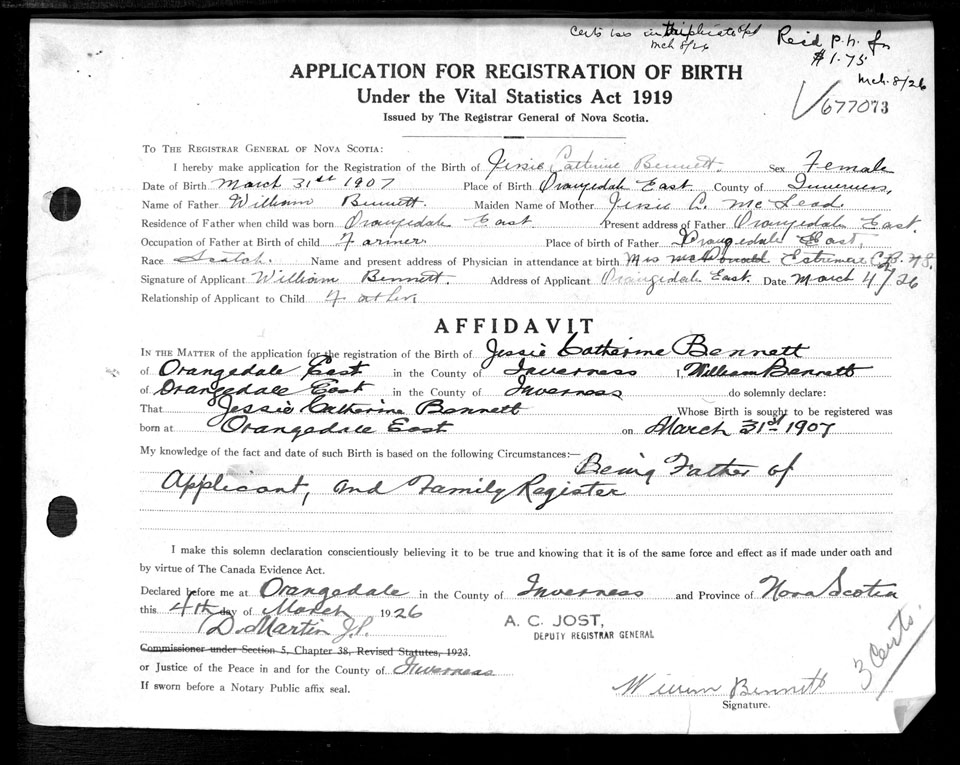 Certs iss in triplicate
Mch 8/26
Reid P. N. for
$1.75
Mch. 8/26
677073
APPLICATION FOR REGISTRATION OF BIRTH
Under the Vital Statistics Act 1919
Issued by The Registrar General of Nova Scotia.
TO THE REGISTRAR GENERAL OF NOVA SCOTIA:
I hereby make application for the Registration of the Birth of Jessie Catherine Bennett. Sex Female
Date of Birth March 31st 1907 Place of Birth Orangedale East County of Inverness,
Name of Father William Bennett. Maiden Name of Mother Jessie C. McLeod.
Residence of Father when child was born Orangedale East Present address of Father Orangedale East.
Occupation of Father at Birth of child Farmer Place of birth of Father Orangedale East,
Race Scotch. Name and present address of Physician in attendance at birth Mrs McDonald C.B. N.S.
Signature of Applicant William Bennett. Address of Applicant Orangedale East. Date March 4/26
Relationship of Applicant to Child Father
AFFIDAVIT
IN THE MATTER of the application for the registration of the Birth of Jessie Catherine Bennett
of Orangedale East in the County of Inverness I, William Bennett
of Orangedale East in the County of Inverness do solemnly declare:
That Jessie Catherine Bennett Whose Birth is sought to be registered was
born at Orangedale East on March 31st 1907
My knowledge of the fact and date of such Birth is based on the following Circumstances:— Being Father of
Applicant, and Family Register
I make this solemn declaration conscientiously believing it to be true and knowing that it is of the same force and effect as if made under oath and
by virtue of The Canada Evidence Act.
Declared before me at Orangedale in the County of Inverness and Province of Nova Scotia
this 4th day of March 1926
D. Martin J.P.
A. C. JOST,
DEPUTY REGISTRAR GENERAL
Commissioner under Section 5, Chapter 38, Revised Statutes, 1923.
or Justice of the Peace in and for the County of Inverness
If sworn before a Notary Public affix seal.
3 Certs.
William Bennett
Signature.